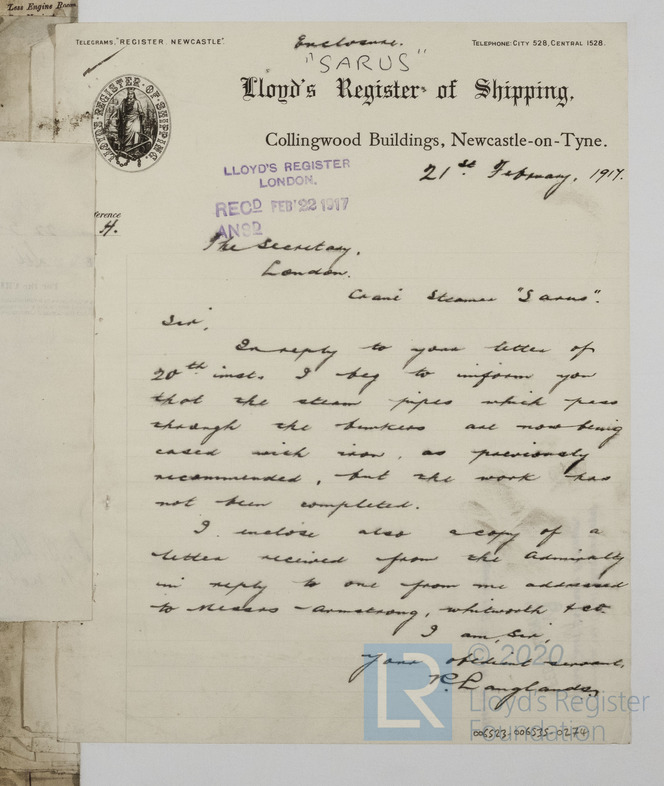 Less Engine Room
TELEGRAMS, "REGISTER, NEWCASTLE".
Enclosure.
TELEPHONE: CITY 528, CENTRAL 1528.
"SARUS"
Lloyd's Register of Shipping,
LLOYD'S REGISTER OF SHIPPING
Collingwood Buildings, Newcastle-on-Tyne.
21st February, 1917.
LLOYD'S REGISTER
LONDON.
RECD FEB 22 1917
ANSD
erence
H.
The Secretary,
London.
Steamer "Sarus".
Sir,
In reply to your letter of
20th inst. I beg to inform you
that the steam pipes which pass
through the bunkers are now being
cased with iron, as previously
recommended, but the work has
not been completed.
I enclose also a copy of a
letter received from the Admiralty
in reply to one from me addressed
to Messrs Armstrong, Whitworth & Co.
I am, Sir,
Your obedient servant,
R. Langlands,
LR
© 2020
Lloyd's Register
Foundation
006523-006535-0274